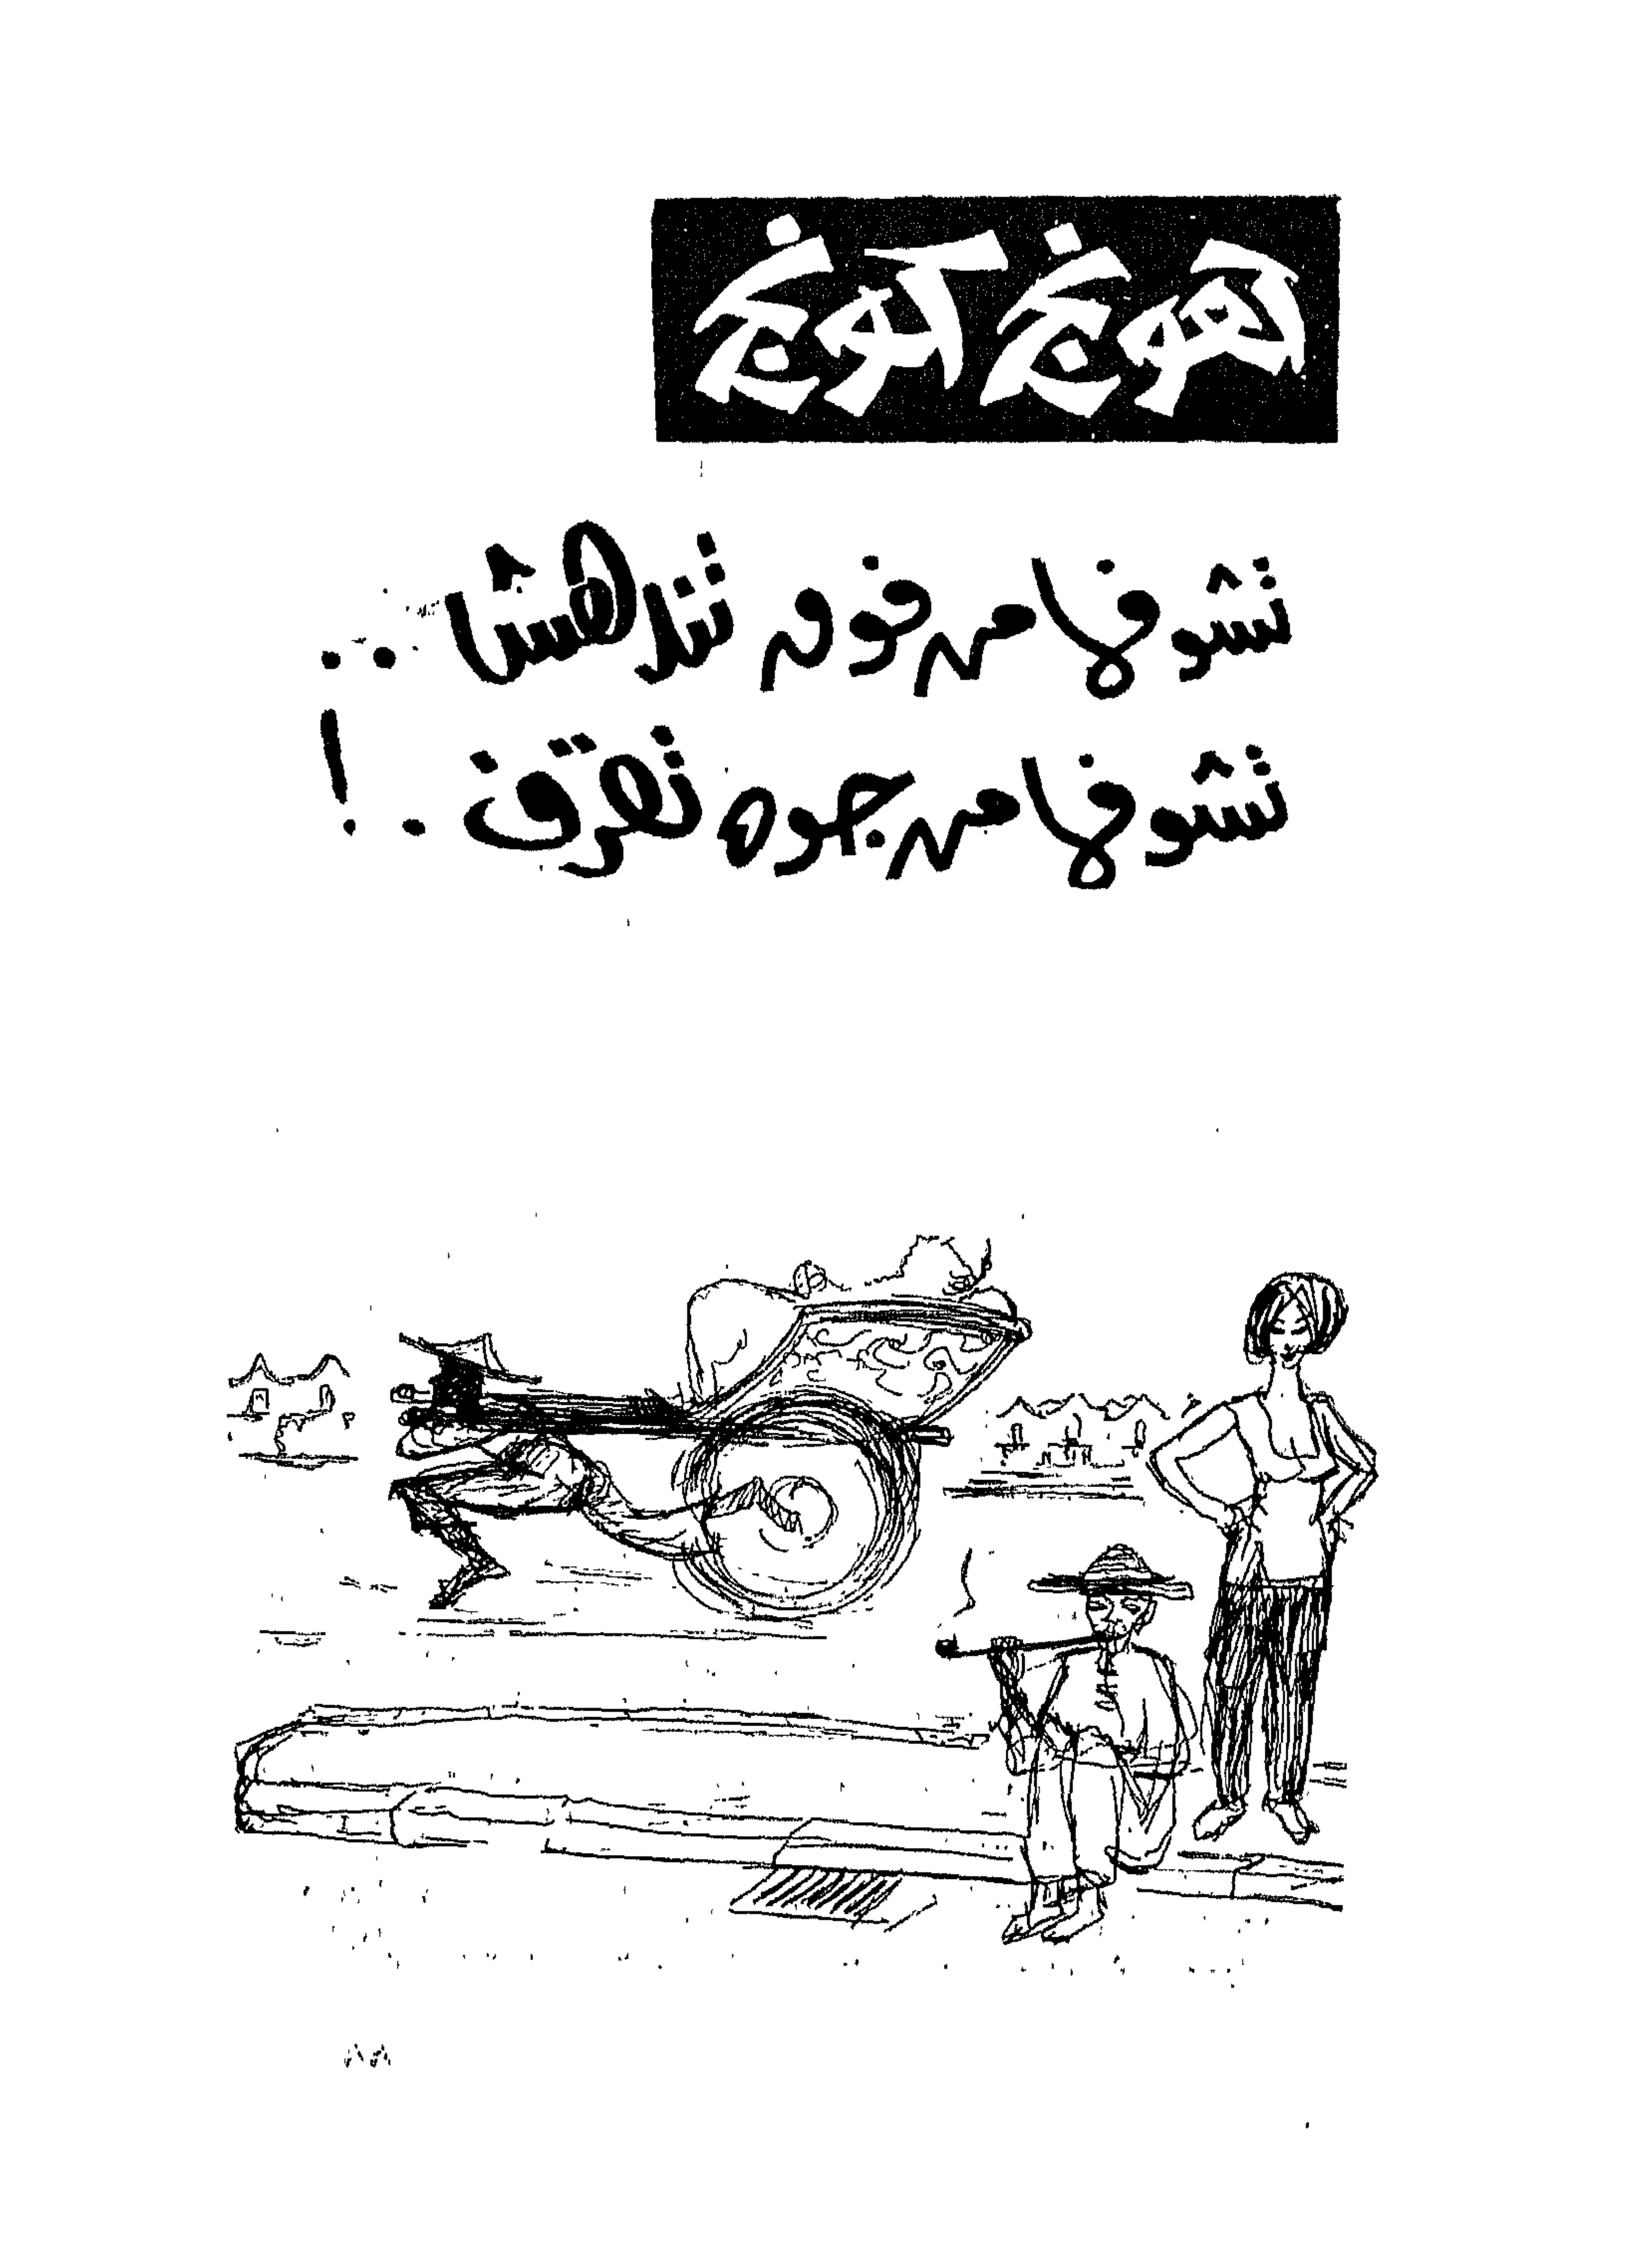 هونج كونج
تشوفها من فوق تندهش ..
تشوفها من جوه تقرف . !
٨٨